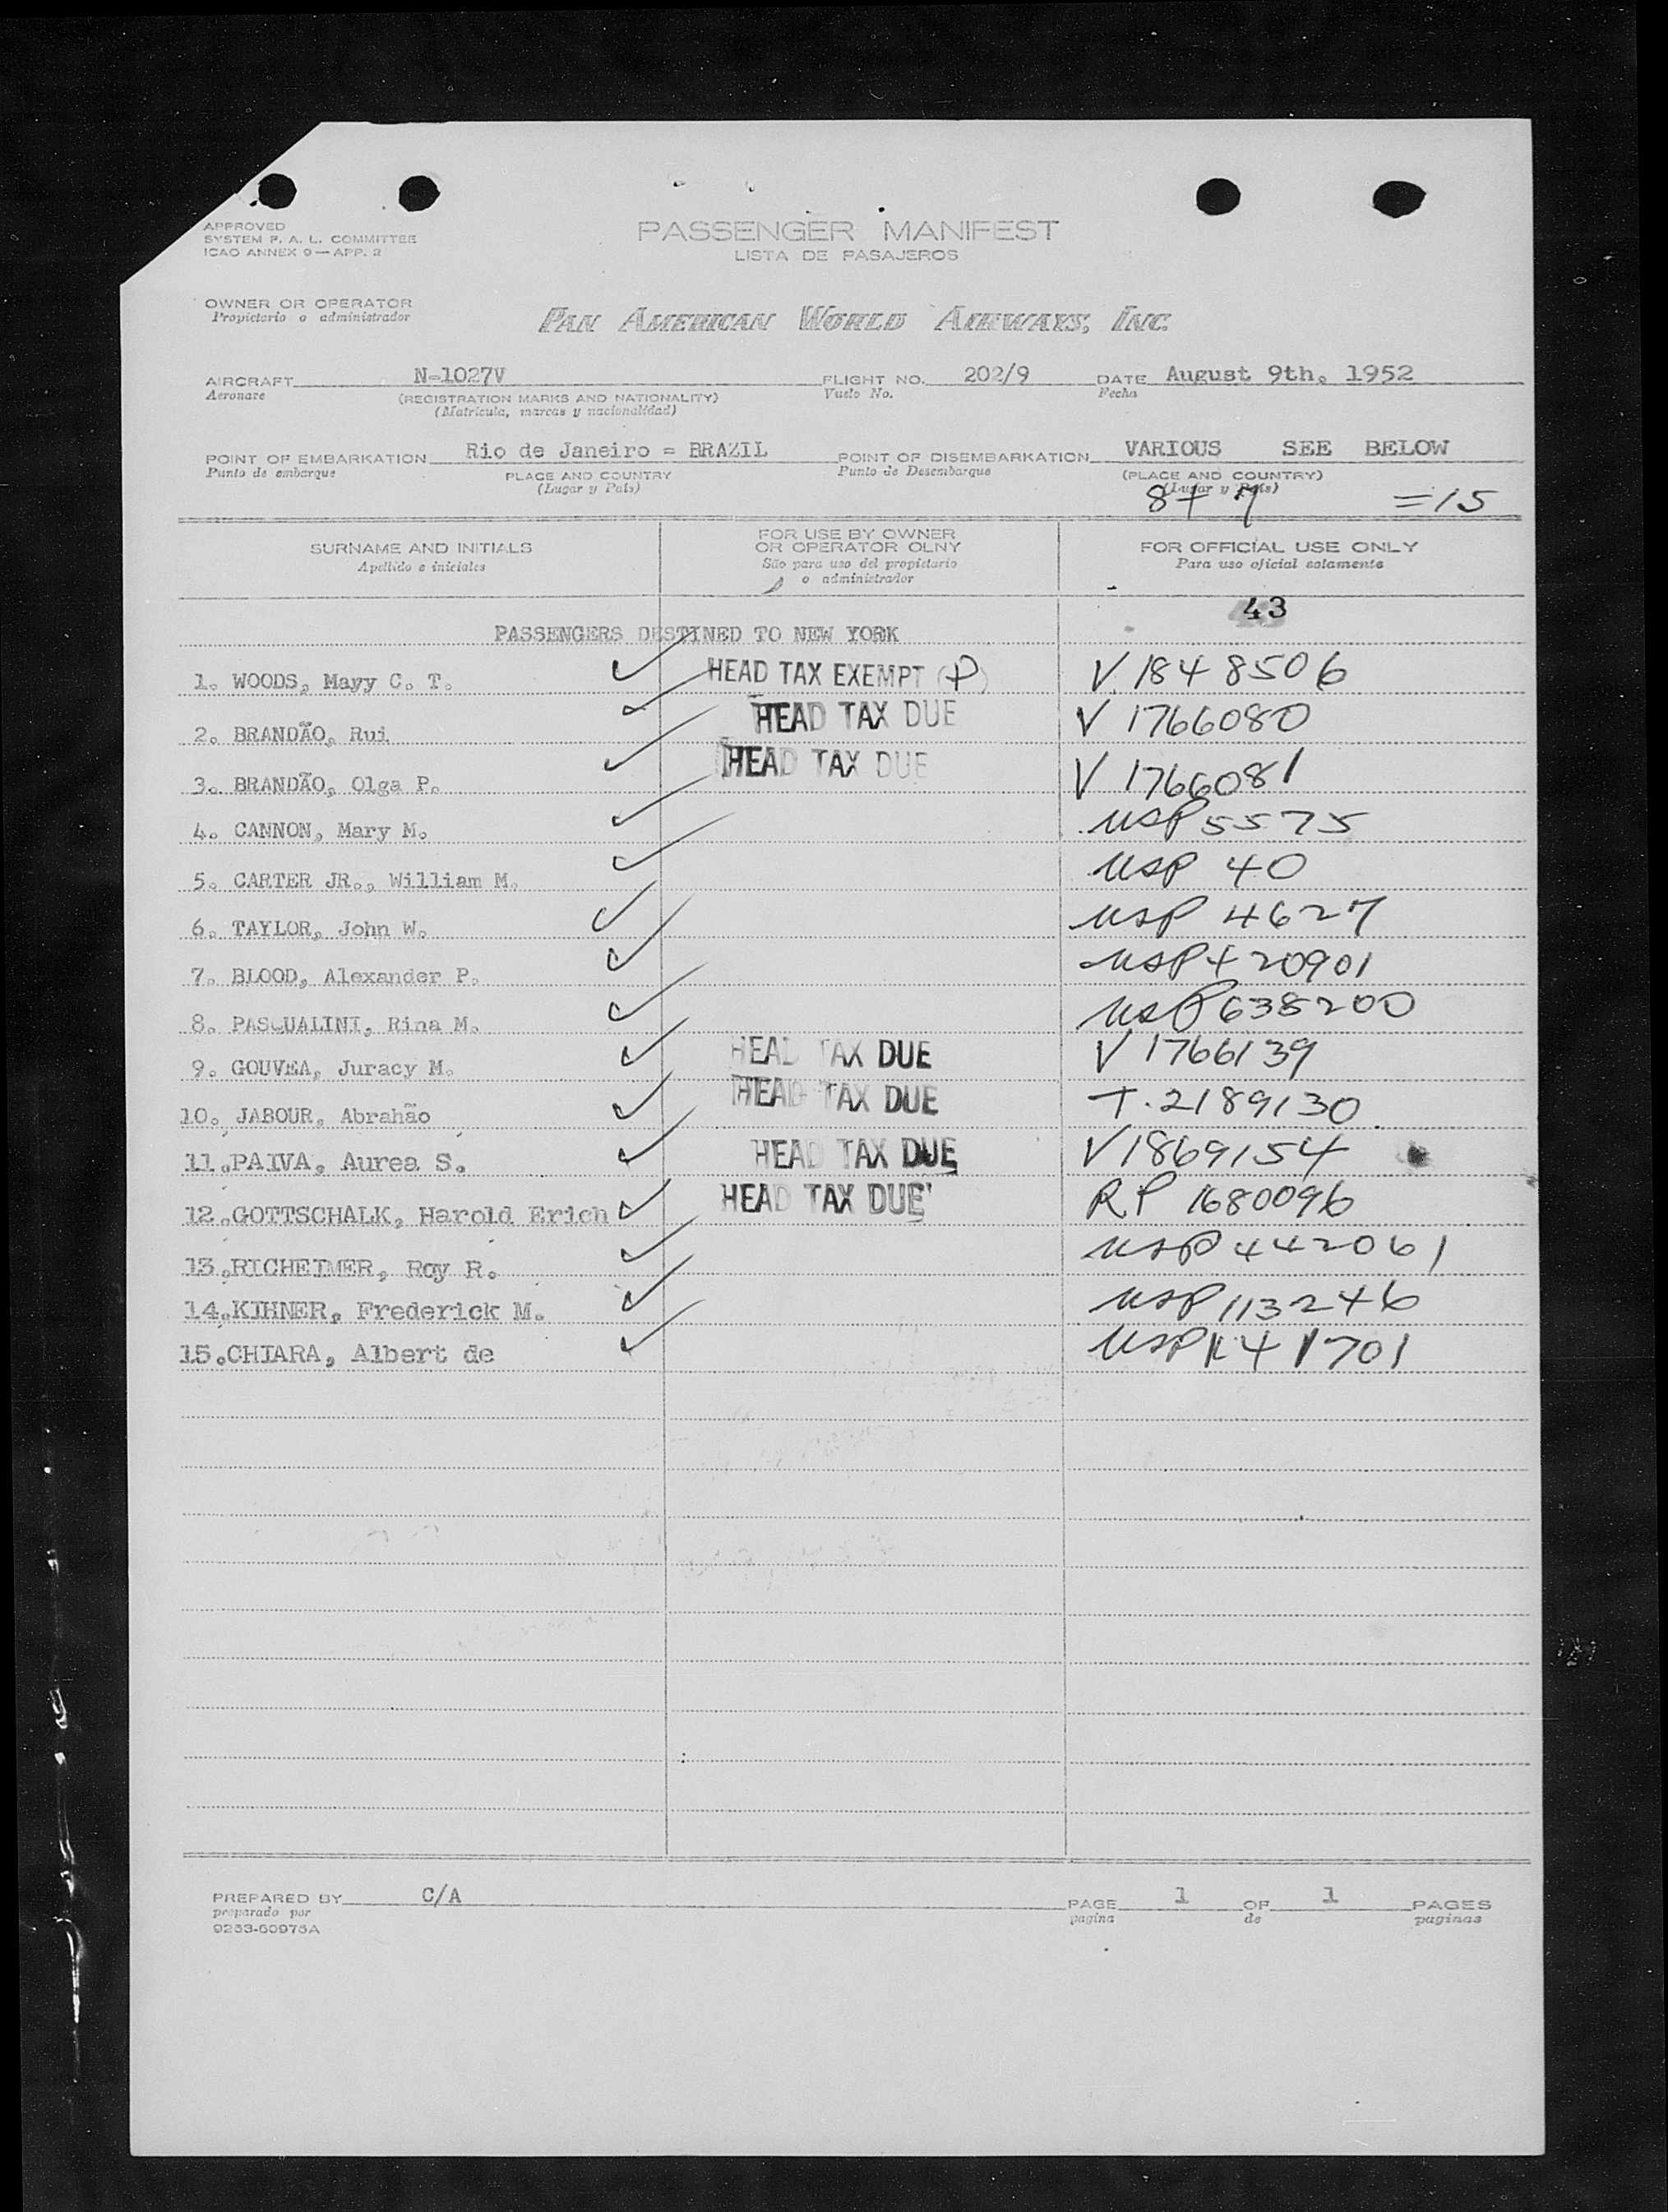 APPROVED
SYSTEM F. A. L. COMMITTEE
ICAO ANNEX 9 — APP. 2
PASSENGER MANIFEST
LISTA DE PASAJEROS
OWNER OR OPERATOR
Propietario o administrador
PAN AMERICAN WORLD AIRWAYS, INC.
AIRCRAFT N-1027V FLIGHT NO. 202/9 DATE August 9th. 1952
Aeronave (REGISTRATION MARKS AND NATIONALITY) Vuelo No. Fecha
(Matricula, marcas y nacionalidad)
POINT OF EMBARKATION Rio de Janeiro = BRAZIL POINT OF DISEMBARKATION VARIOUS SEE BELOW
Punto de embarque PLACE AND COUNTRY Punto de Desembarque (PLACE AND COUNTRY)
(Lugar y País) (Lugar y País)
8+7 =15
SURNAME AND INITIALS FOR USE BY OWNER OR OPERATOR OLNY FOR OFFICIAL USE ONLY
Apellido e iniciales São para uso del propietario o administrador Para uso oficial solamente
43
PASSENGERS DESTINED TO NEW YORK
1. WOODS, Mayy C. T. ✓ HEAD TAX EXEMPT (P) V 1848506
2. BRANDÃO, Rui ✓ HEAD TAX DUE V 1766080
3. BRANDÃO, Olga P. ✓ HEAD TAX DUE V 1766081
4. CANNON, Mary M. ✓ USP 5575
5. CARTER JR., William M. ✓ USP 40
6. TAYLOR, John W. ✓ USP 4627
7. BLOOD, Alexander P. ✓ USP 420901
8. PASQUALINI, Rina M. ✓ USP 638200
9. GOUVEA, Juracy M. ✓ HEAD TAX DUE V 1766139
10. JABOUR, Abrahão ✓ HEAD TAX DUE T. 2189130
11. PAIVA, Aurea S. ✓ HEAD TAX DUE V 1869154
12. GOTTSCHALK, Harold Erich ✓ HEAD TAX DUE RP 1680096
13. RICHEIMER, Roy R. ✓ USP 442061
14. KIHNER, Frederick M. ✓ USP 113246
15. CHIARA, Albert de ✓ USP
PREPARED BY C/A PAGE 1 OF 1 PAGES
preparado por pagina de paginas
9253-60975A